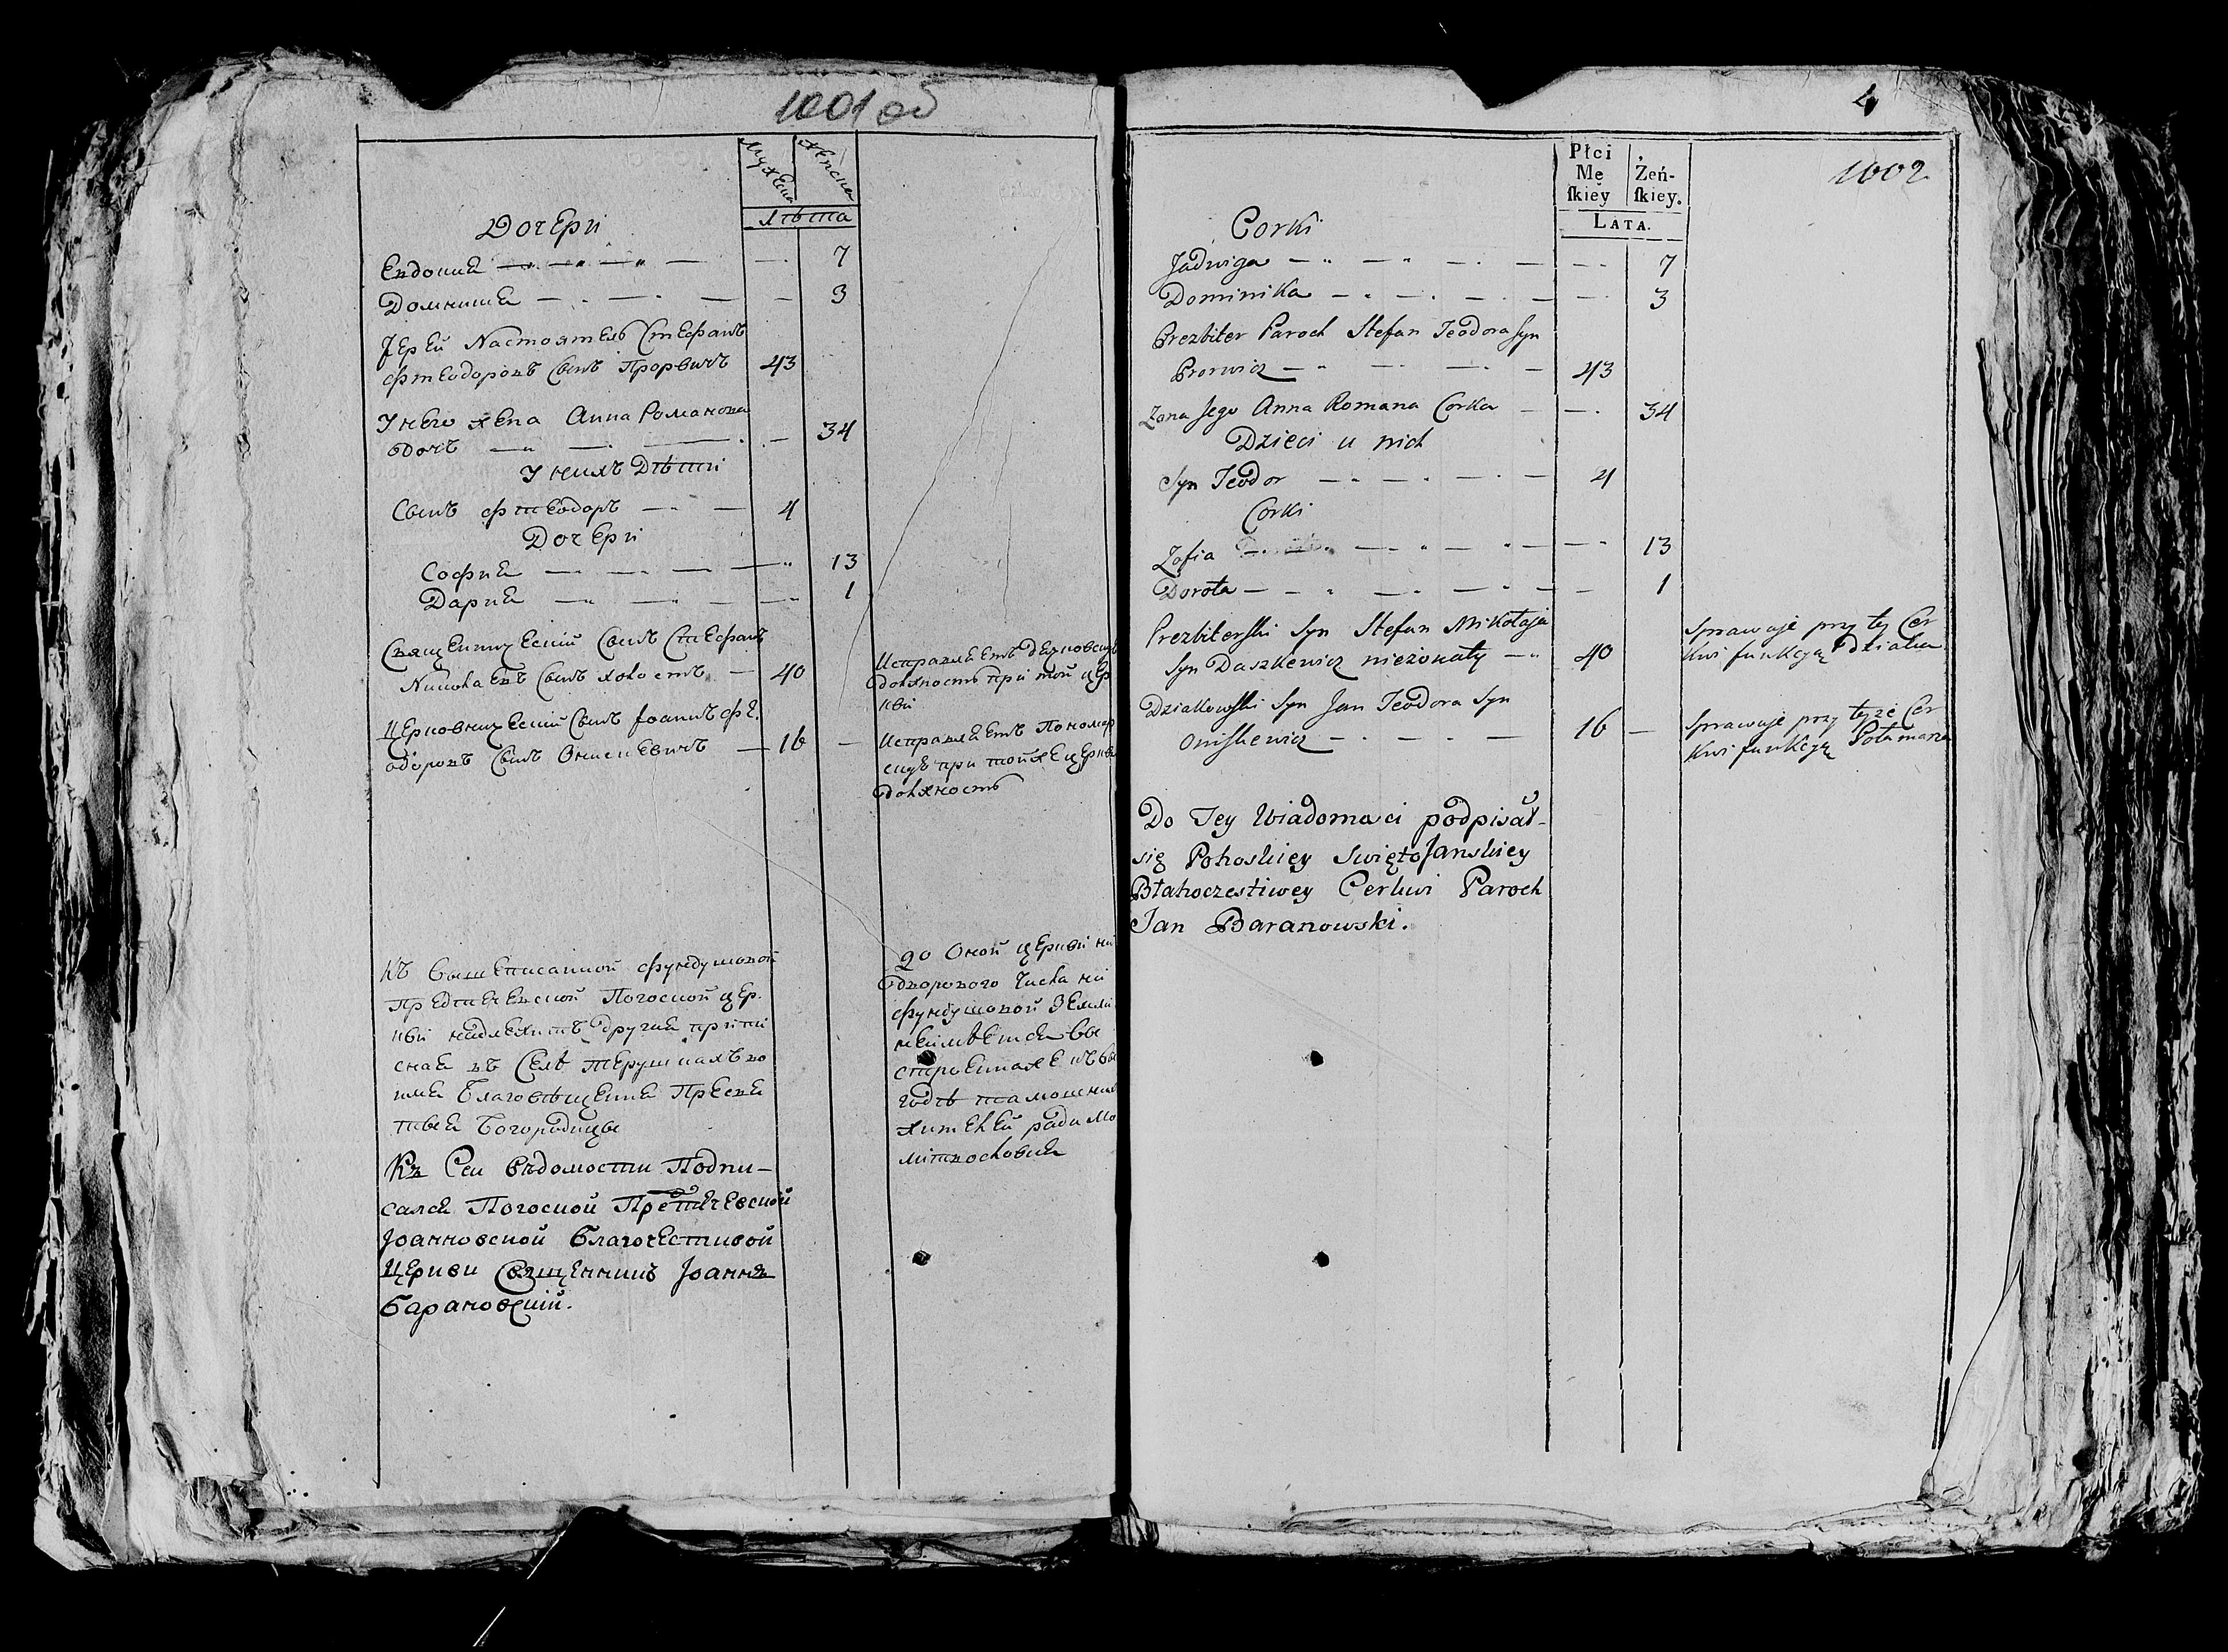 1001 об
Мужеска
Женска
Лѣта
Дочери
Евдокия 7
Домникия 3
Іерей Настоятель Стефанъ
Фтеодоровъ Сынъ Прорвичъ 43
У него жена Анна Романова
дочь 34
У нихъ Дѣти
Сынъ Фтеодоръ 4
Дочери
София 13
Дария 1
Священническій Сынъ Стефанъ
Николаевъ Сынъ холостъ 40
Исправляетъ дячковску
должность при той цер
кви
Церковническій Сынъ Іоаннъ Фт.
одоровъ Сынъ Онискевичъ 16
Исправляетъ Пономар
скую при той же церкви
должность
Къ вышеписанной фундушовой
Предтечевской Погоской цер.
кви надлежитъ другая припи
сная въ Селѣ Терушпахъ во
имя Благовѣщения Пресвя
тыя Богородицы
До оной церкви ни
дворового числа ни
фундушовой Земли
неимѣется вы
строена же въ вы
годѣ тамошних
жителей ради мо
литвословия
Къ Сеи Вѣдомости Подпи-
салса Погоской Претечевской
Іоанновской Благочестивой
Церкви Священникъ Іоаннъ
Барановскій.
4
1002
Płci
Mę
ſkiey
Żeń-
ſkiey.
LATA.
Corki
Jadwiga 7
Dominika 3
Prezbiter Paroch Stefan Teodora Syn
Prorwicz 43
Zona Jego Anna Romana Corka 34
Dzieci u nich
Syn Teodor 4
Corki
Zofia 13
Dorota 1
Prezbiterski Syn Stefan Mikołaja
Syn Daszkewicz nieżonaty 40
Sprawuje przy tey Cer
kwi funkcyą Działka
Dziakowski Syn Jan Teodora Syn
Oniskewicz 16
Sprawuje przy teyże Cer
kwi funkcyą Połamara
Do Tey Wiadomości podpisał-
się Pohoskiey SwiętoJanskiey
Błahoczestiwey Cerkwi Paroch
Jan Baranowski.